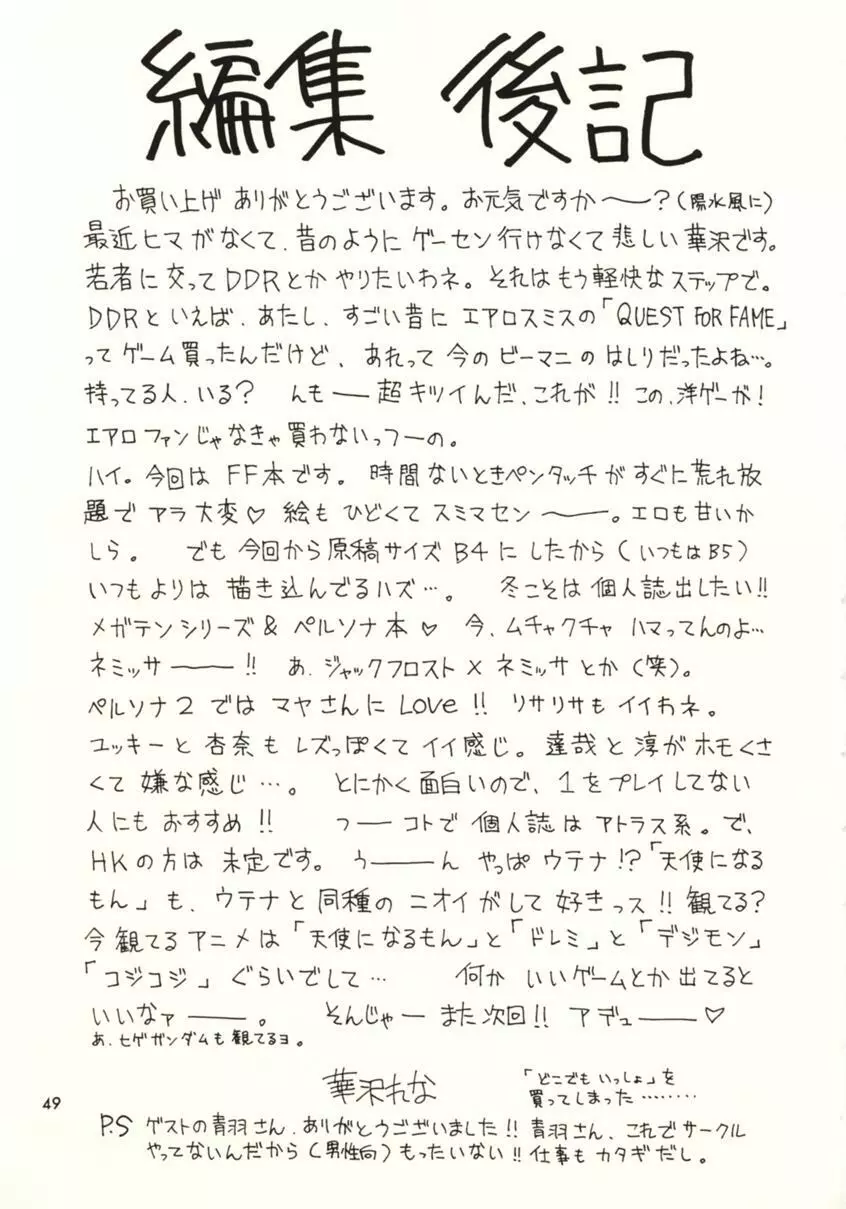 編集後記
お買い上げ ありがとうございます。お元気ですか〜〜?(陽水風に)
最近ヒマがなくて、昔のようにゲーセン行けなくて悲しい華沢です。
若者に交ってDDRとかやりたいわネ。それはもう軽快なステップで。
DDRといえば、あたし、すごい昔にエアロスミスの「QUEST FOR FAME」
ってゲーム買ったんだけど、あれって今のビーマニのはしりだったよね…。
持ってる人、いる? んもー超キツイんだ、これが!! この、洋ゲーが!
エアロファンじゃなきゃ買わないっつーの。
ハイ。今回はFF本です。時間ないときペンタッチがすぐに荒れ放
題でアラ大変♡ 絵もひどくてスミマセン〜〜。エロも甘いか
しら。 でも今回から原稿サイズB4にしたから(いつもはB5)
いつもよりは描き込んでるハズ…。 冬こそは個人誌出したい!!
メガテンシリーズ&ペルソナ本♡ 今、ムチャクチャハマってんのよ…
ネミッサー!! あ、ジャックフロスト×ネミッサとか(笑)。
ペルソナ2ではマヤさんにLove!! リサリサもイイわネ。
ユッキーと杏奈もレズっぽくてイイ感じ。達哉と淳がホモくさ
くて嫌な感じ…。 とにかく面白いので、1をプレイしてない
人にもおすすめ!! つーコトで個人誌はアトラス系。で、
HKの方は未定です。うーーん やっぱウテナ!?「天使になる
もん」も、ウテナと同種のニオイがして好きっス!! 観てる?
今観てるアニメは「天使になるもん」と「ドレミ」と「デジモン」
「コジコジ」ぐらいでして… 何かいいゲームとか出てると
いいなァー。 そんじゃーまた次回!! アデュー♡
あ、ヒゲガンダムも観てるヨ。
華沢れな
「どこでもいっしょ」を
買ってしまった………
49
P.S ゲストの青羽さん、ありがとうございました!! 青羽さん、これでサークル
やってないんだから(男性向)もったいない!! 仕事もカタギだし。